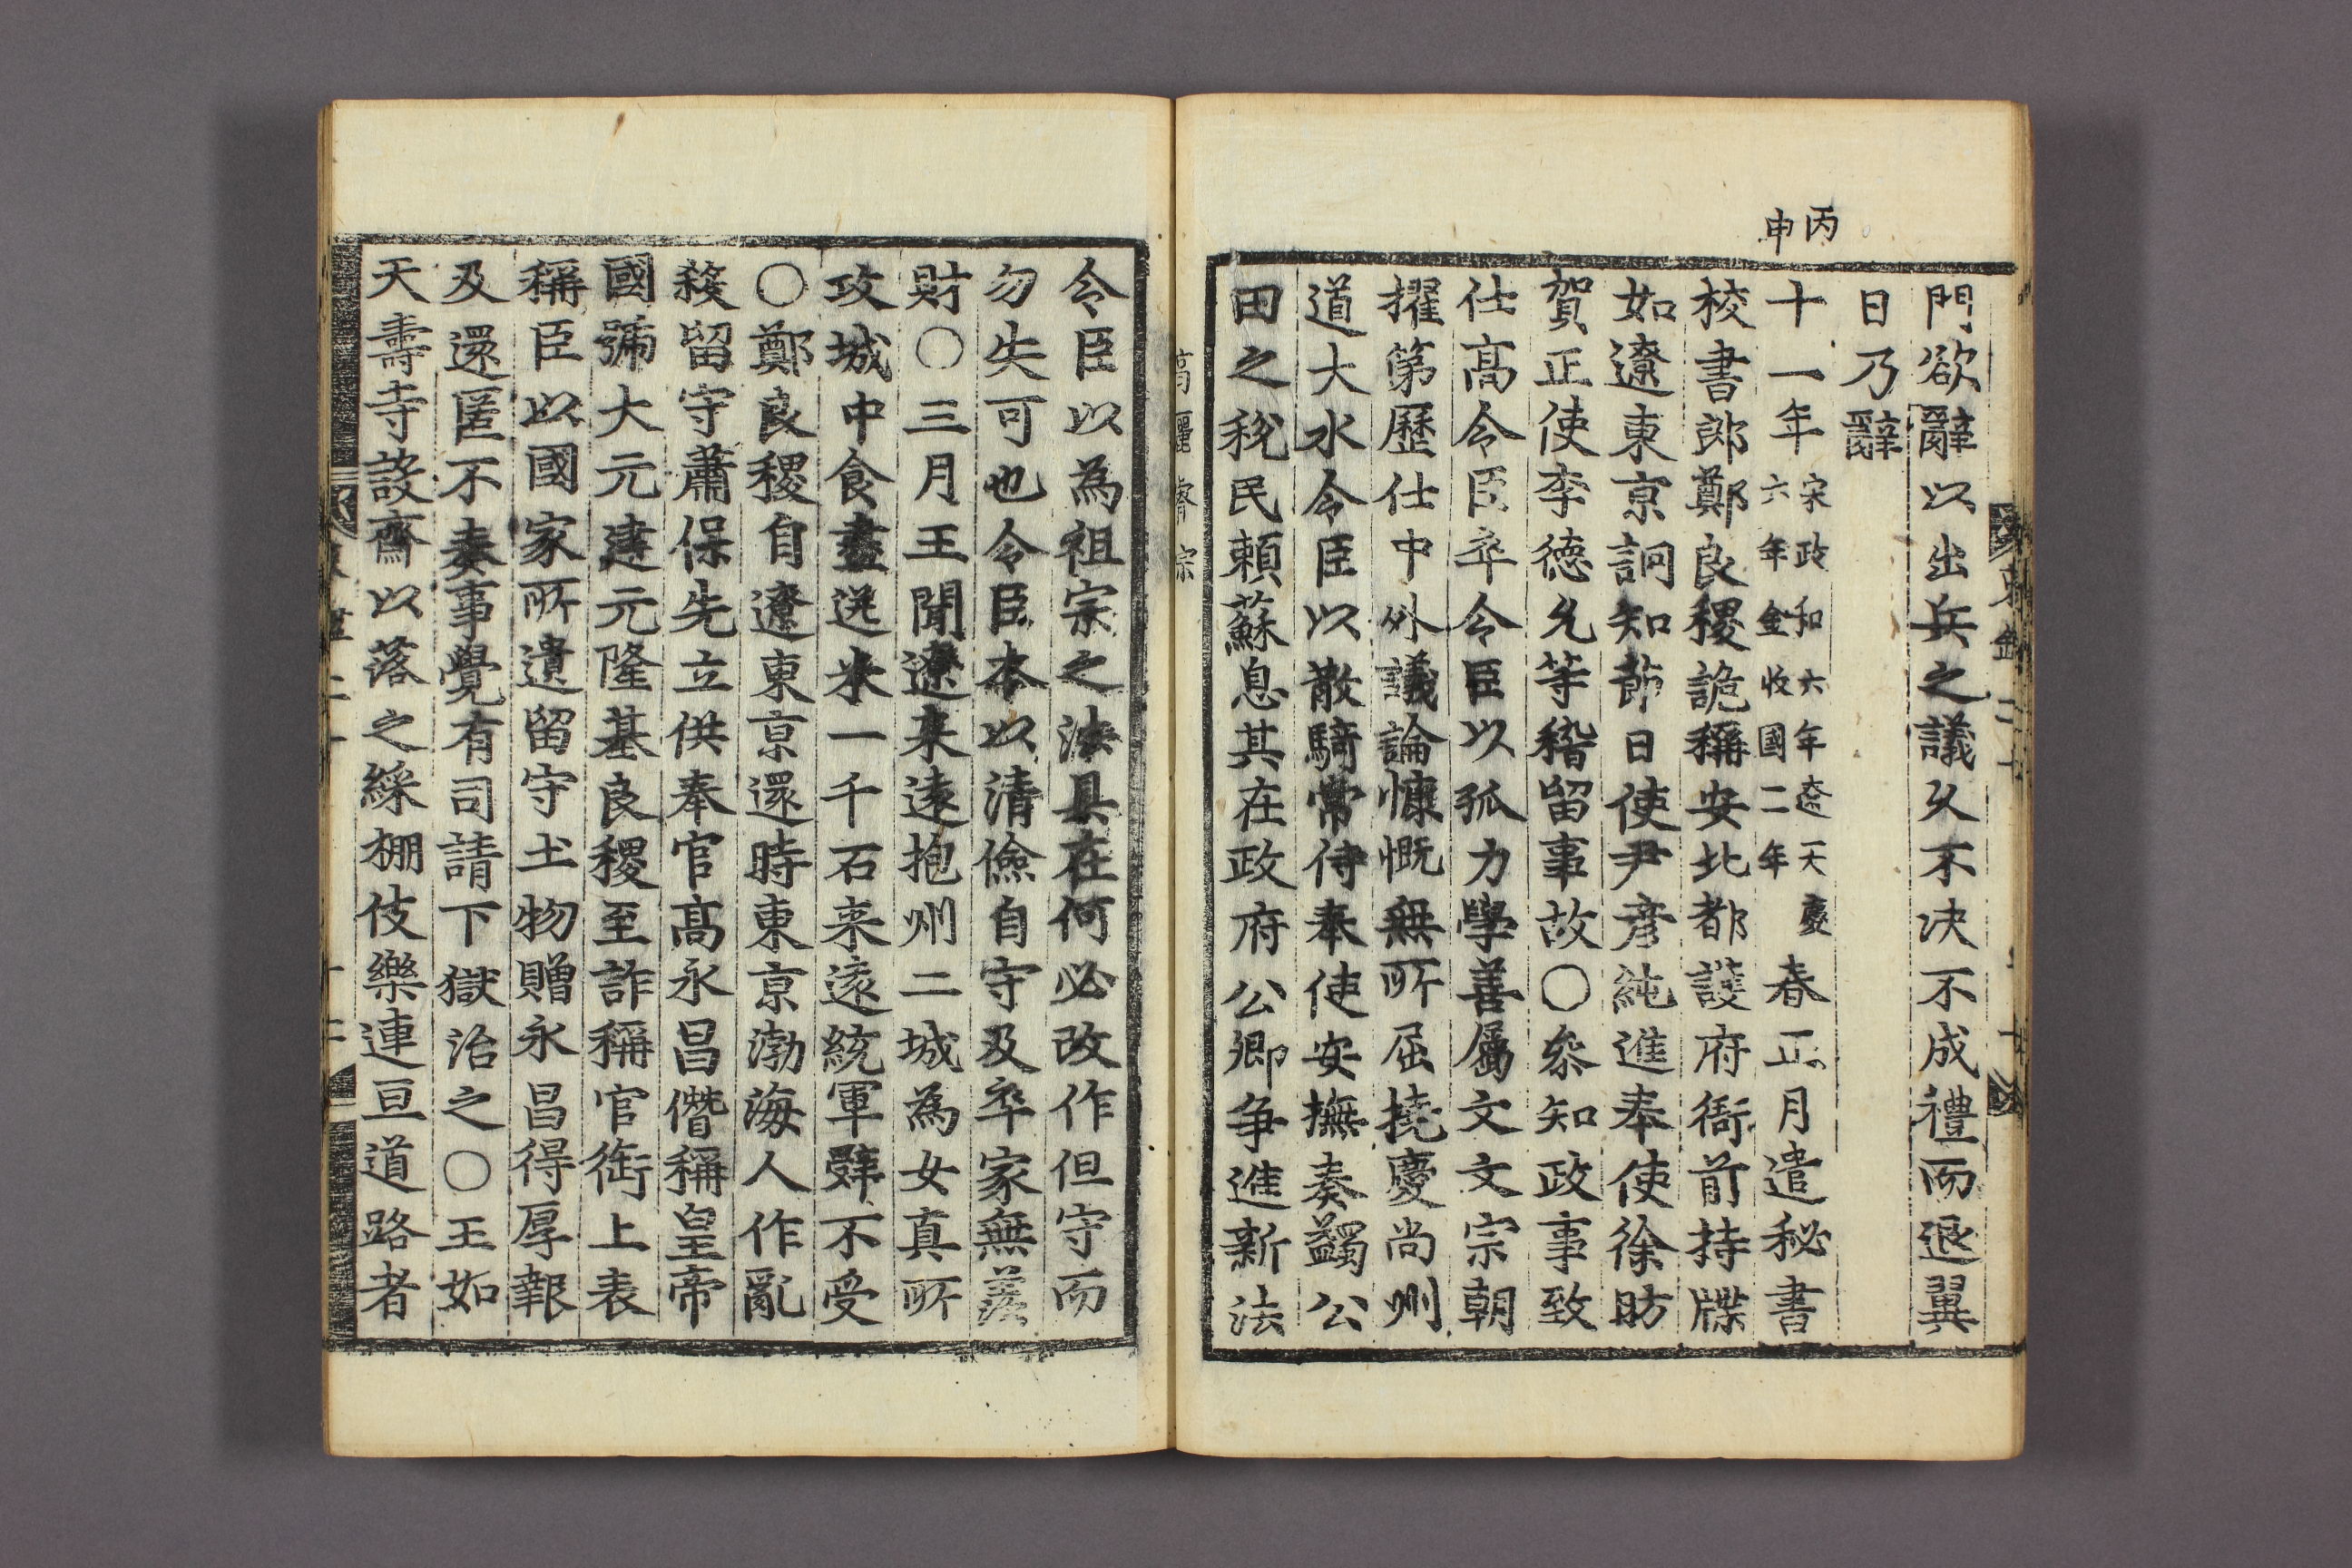 丙申
門欲辭以出兵之議久不决不成禮而退翼
日乃辭
十一年宋政和六年遼天慶六年金收國二年春正月遣秘書
校書郎鄭良稷詭稱安北都護府衙前持牒
如遼東京詗知節日使尹彦純進奉使徐昉
賀正使李德允等稽留事故〇叅知政事致
仕高令臣卒令臣以孤力學善屬文文宗朝
擢第歷仕中外議論慷慨無所屈撓慶尚州
道大水令臣以散騎常侍奉使安撫奏蠲公
田之稅民賴蘇息其在政府公卿争進新法
高麗睿宗
令臣以為祖宗之法具在何必改作但守而
勿失可也令臣本以清儉自守及卒家無羨
財〇三月王聞遼来遠抱州二城為女真所
攻城中食盡送米一千石来遠統軍辭不受
〇鄭良稷自遼東京還時東京渤海人作亂
殺留守蕭保先立供奉官高永昌僭稱皇帝
國號大元建元隆基良稷至詐稱官銜上表
稱臣以國家所遺留守土物贈永昌得厚報
及還匿不奏事覺有司請下獄治之〇王如
天壽寺設齋以落之綵棚伎樂連亘道路者